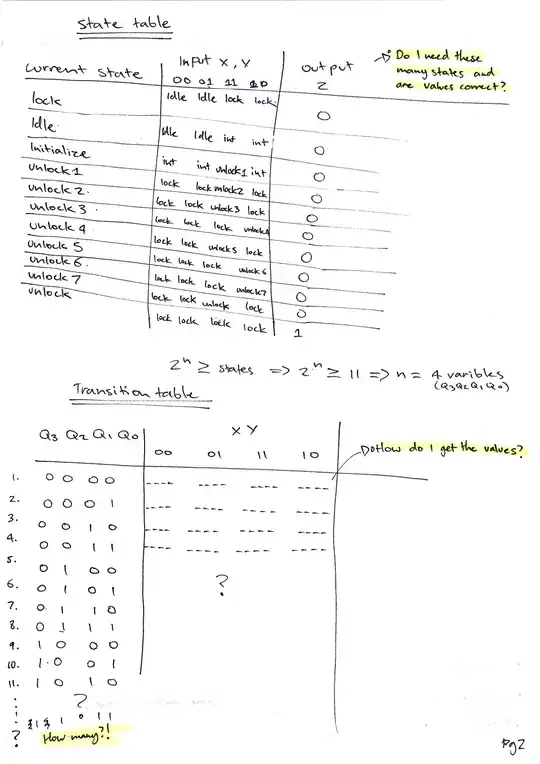 State table
Current State Input X, Y output
00 01 11 10 Z
Do I need these
many states and
are values correct?
lock Idle Idle lock lock 0
Idle Idle Idle int int 0
Initialize int int unlock1 int 0
unlock 1 lock lock unlock2 lock 0
unlock 2 lock lock unlock3 lock 0
unlock 3 lock lock lock unlock4 0
unlock 4 lock lock unlock5 lock 0
unlock 5 lock lock lock unlock6 0
unlock 6 lock lock lock unlock7 0
unlock 7 lock lock unlock lock 0
unlock lock lock lock lock 1
2^n ≥ states => 2^n ≥ 11 => n = 4 varibles
(Q3Q2Q1Q0)
Transition table
Q3 Q2 Q1 Q0 X Y
00 01 11 10
How do I get the values?
1. 0 0 0 0 ---- ---- ---- ----
2. 0 0 0 1 ---- ---- ---- ----
3. 0 0 1 0 ---- ---- ---- ----
4. 0 0 1 1 ---- ---- ---- ----
5. 0 1 0 0
6. 0 1 0 1 ?
7. 0 1 1 0
8. 0 1 1 1
9. 1 0 0 0
10. 1 0 0 1
11. 1 0 1 0
?
? How many?!
Pg 2